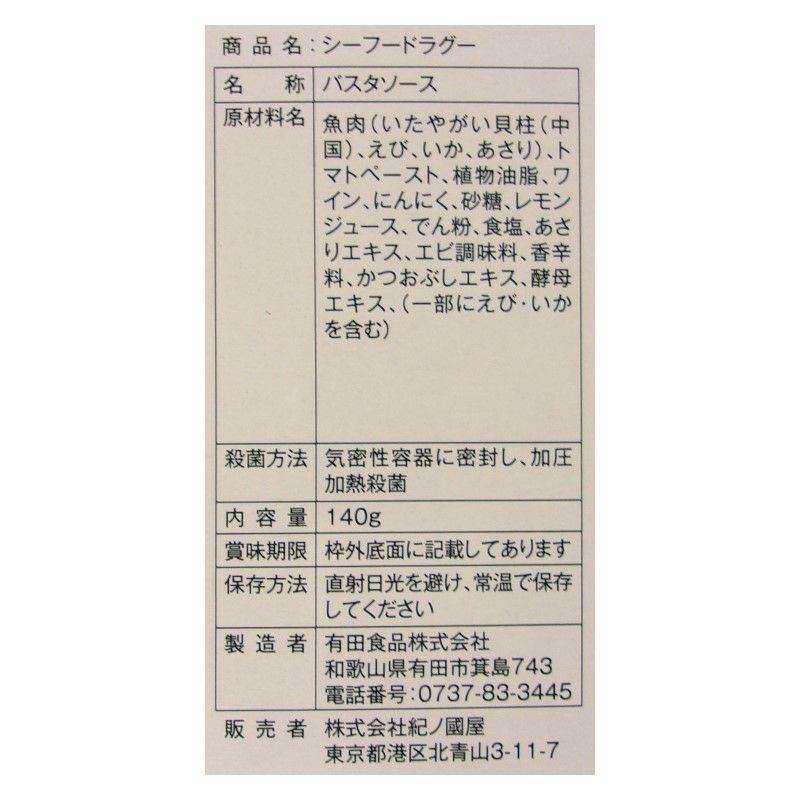 商品名:シーフードラグー
名称 パスタソース
原材料名 魚肉(いたやがい貝柱(中
国)、えび、いか、あさり)、ト
マトペースト、植物油脂、ワ
イン、にんにく、砂糖、レモン
ジュース、でん粉、食塩、あさ
りエキス、エビ調味料、香辛
料、かつおぶしエキス、酵母
エキス、(一部にえび・いか
を含む)
殺菌方法 気密性容器に密封し、加圧
加熱殺菌
内容量 140g
賞味期限 枠外底面に記載してあります
保存方法 直射日光を避け、常温で保存
してください
製造者 有田食品株式会社
和歌山県有田市箕島743
電話番号:0737-83-3445
販売者 株式会社紀ノ國屋
東京都港区北青山3-11-7